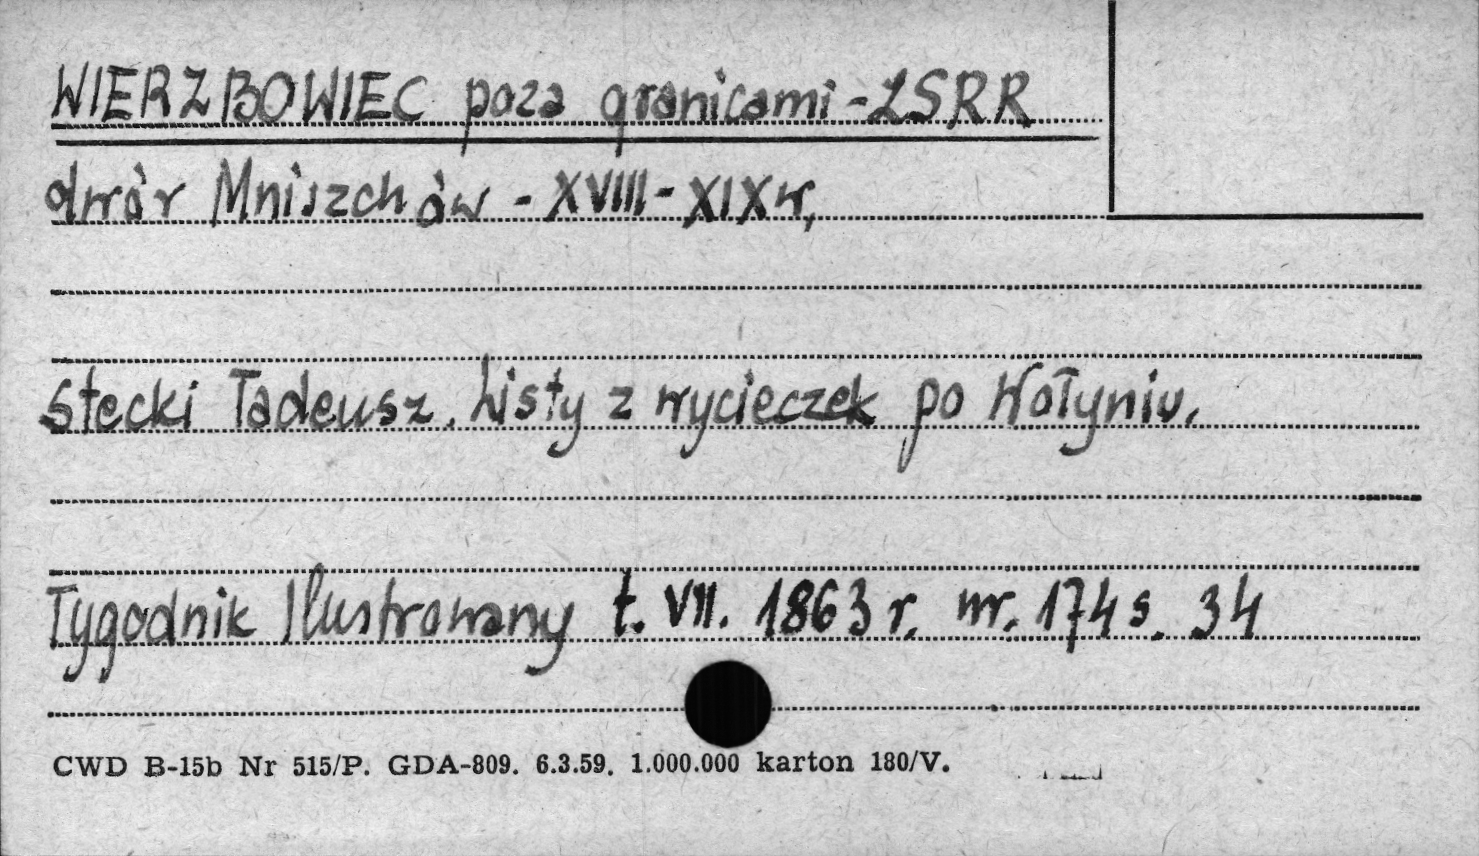 WIERZBOWIEC poza granicami - ZSRR
dwór Mniszchów - XVIII - XIX w,
Stecki Tadeusz. Listy z wycieczek po Wołyniu.
Tygodnik Ilustrowany t. VII. 1863 r. nr. 174 s. 34
CWD B-15b Nr 515/P. GDA-809. 6.3.59. 1.000.000 karton 180/V.